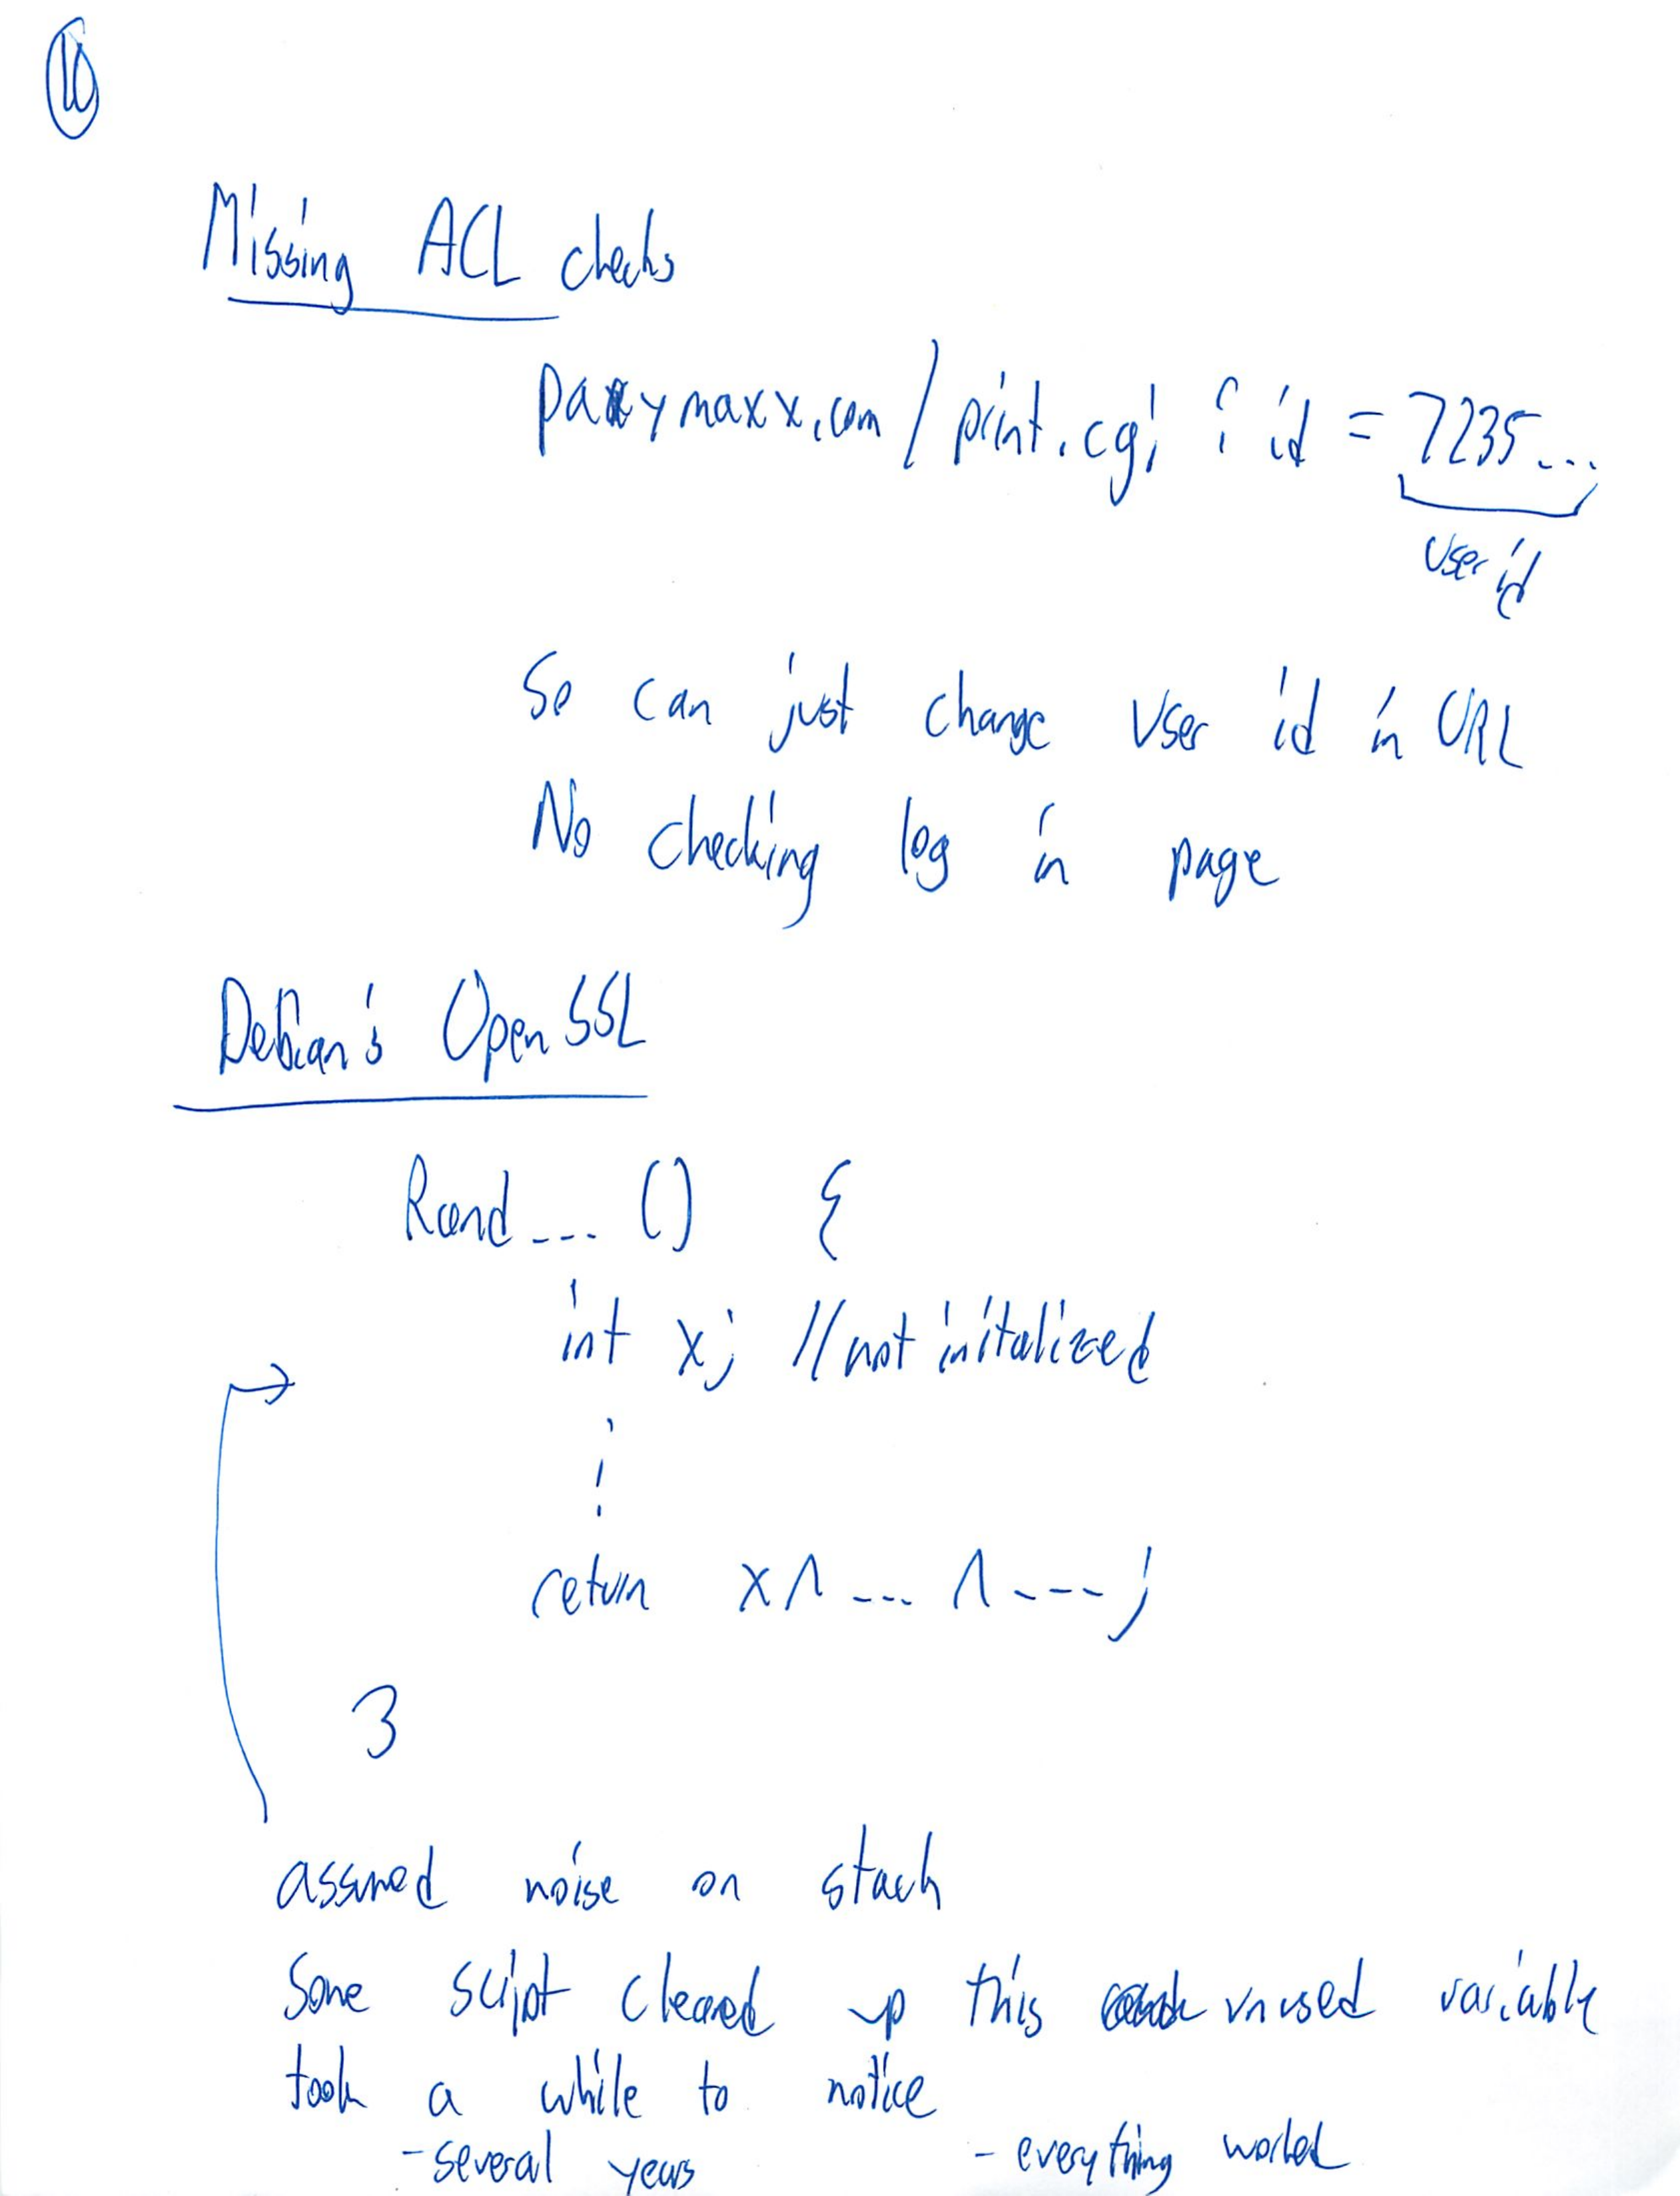 10
Missing ACL checks
paxymaxx.com/print.cgi ? id = 7235...
user id
So can just change user id in URL
No checking log in page
Debian's OpenSSL
Rand... () {
int x; // not initalized
return x ^ ... ^ ....;
}
assumed noise on stack
Some script cleaned up this unused variable
took a while to notice
- several years - everything worked